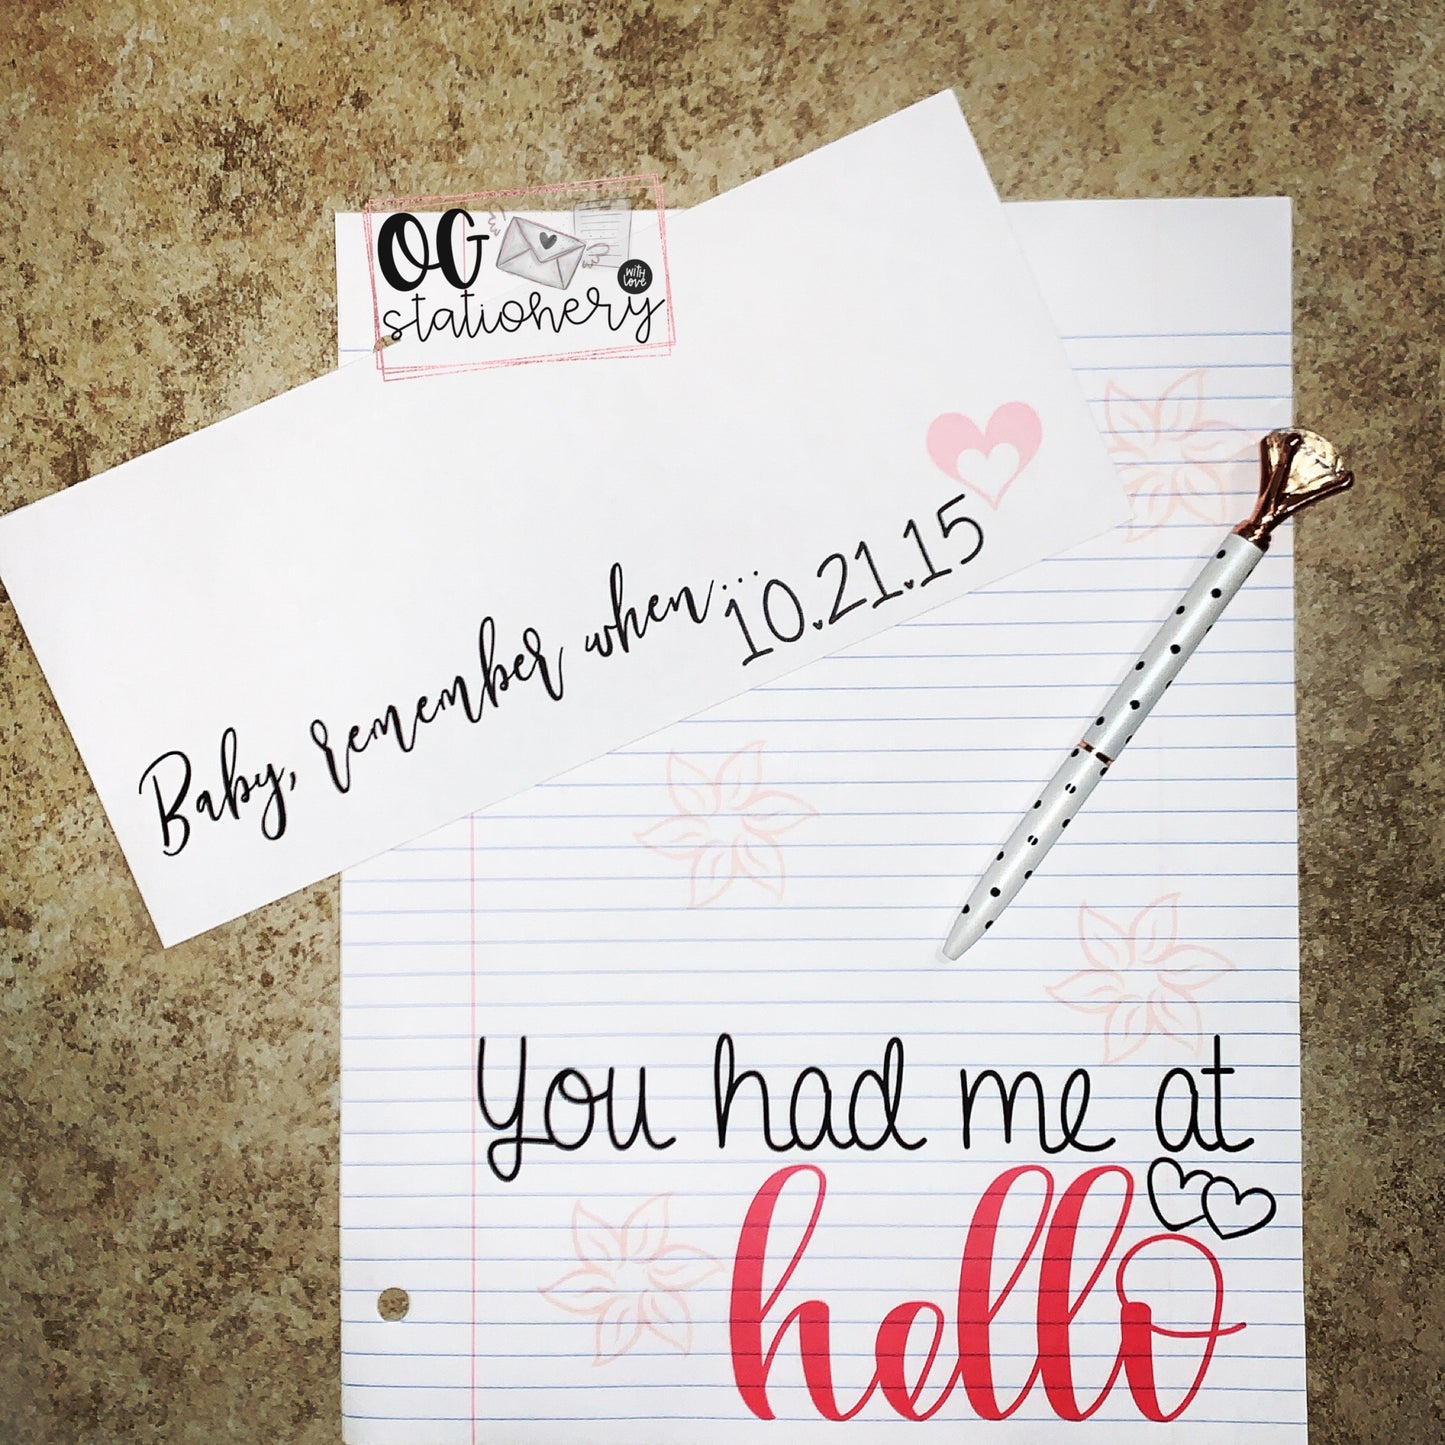 OG
stationery
with
love
Baby, remember when...
10.21.15
You had me at
hello